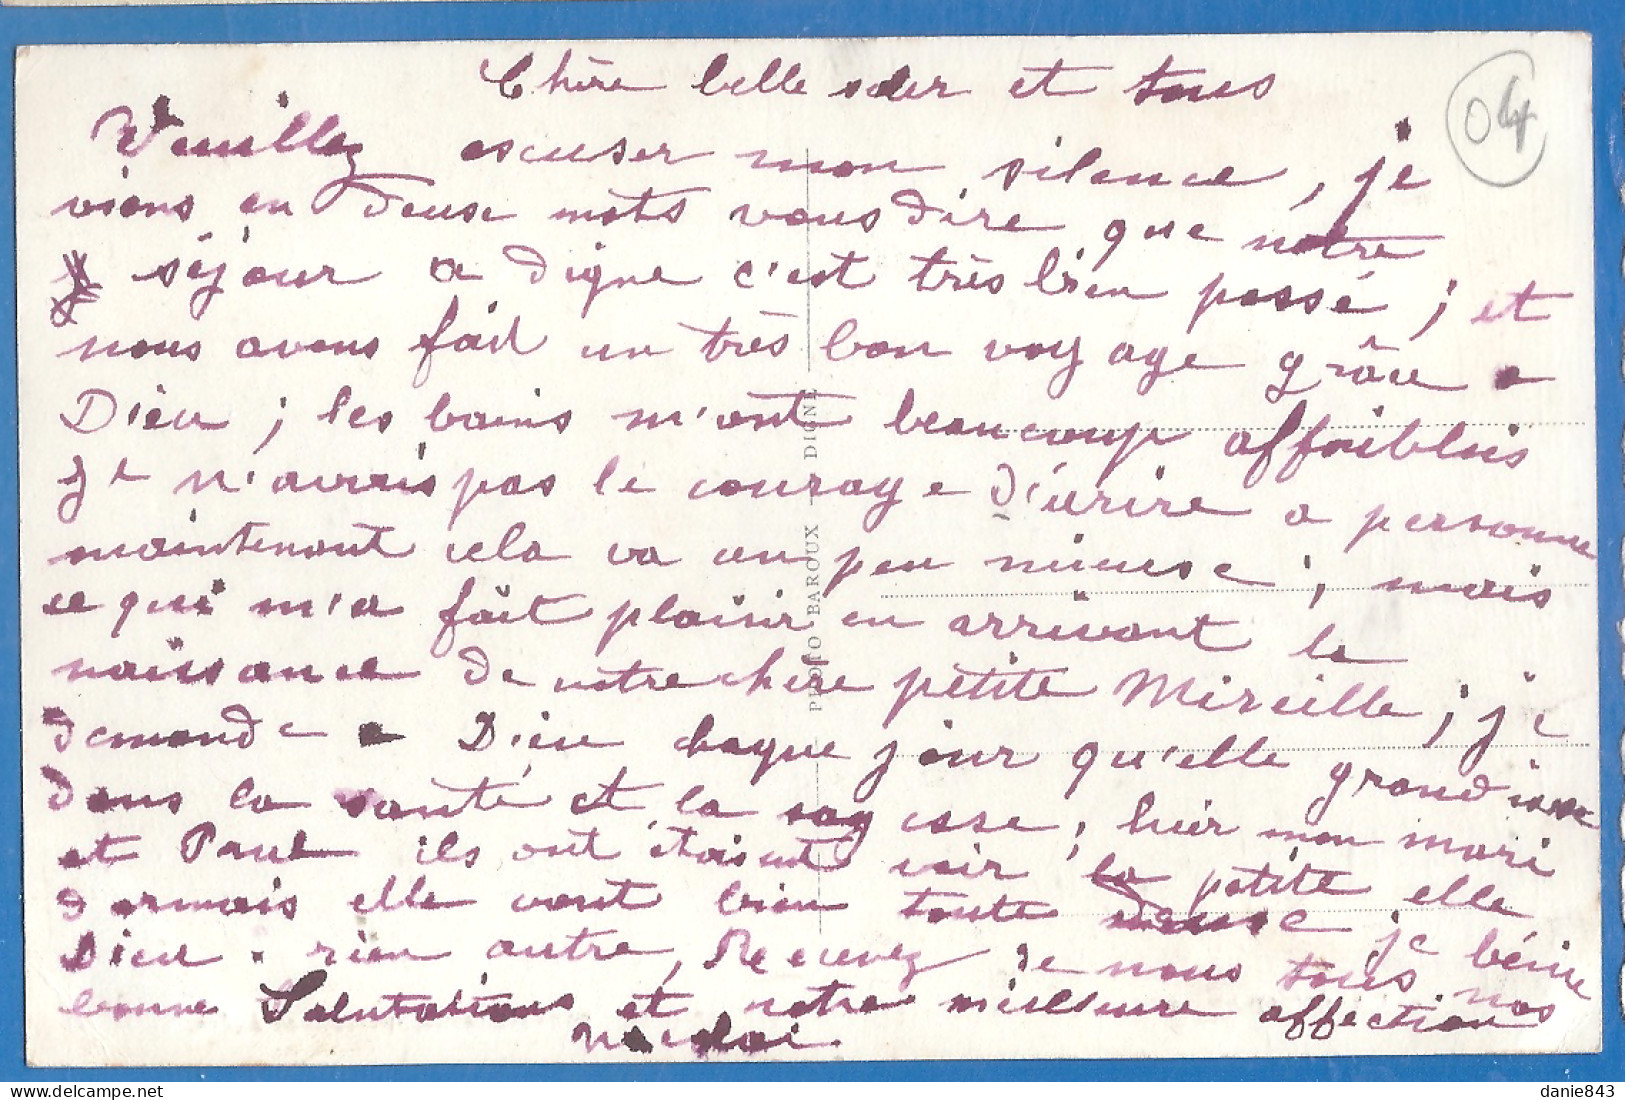 Chère belle sœur et tous
04
Veuillez escuser mon silence, je
viens en deuse mots vous dire que notre
séjour a digne c'est très bien passé ; et
nous avons fait un très bon voyage grâce a
Dieu ; les bains m'ont beaucoup affaiblis
je n'avais pas le courage d'écrire a personne
maintenant cela va un peu mieuse ; mais
ce qui m'a fait plaisir en arrivant la
naissance de votre chère petite Mireille ; je
demande a Dieu chaque jour qu'elle grandisse
dans la santé et la sagesse ; hier mon mari
et Paul ils ont étaient voir la petite elle
dormais elle vont bien toute deuse je bénie
Dieu . rien autre, Recevez de nous tous nos
bonne Salutations et notre meilleure affection
PHOTO BAROUX — DIGNE
danie843